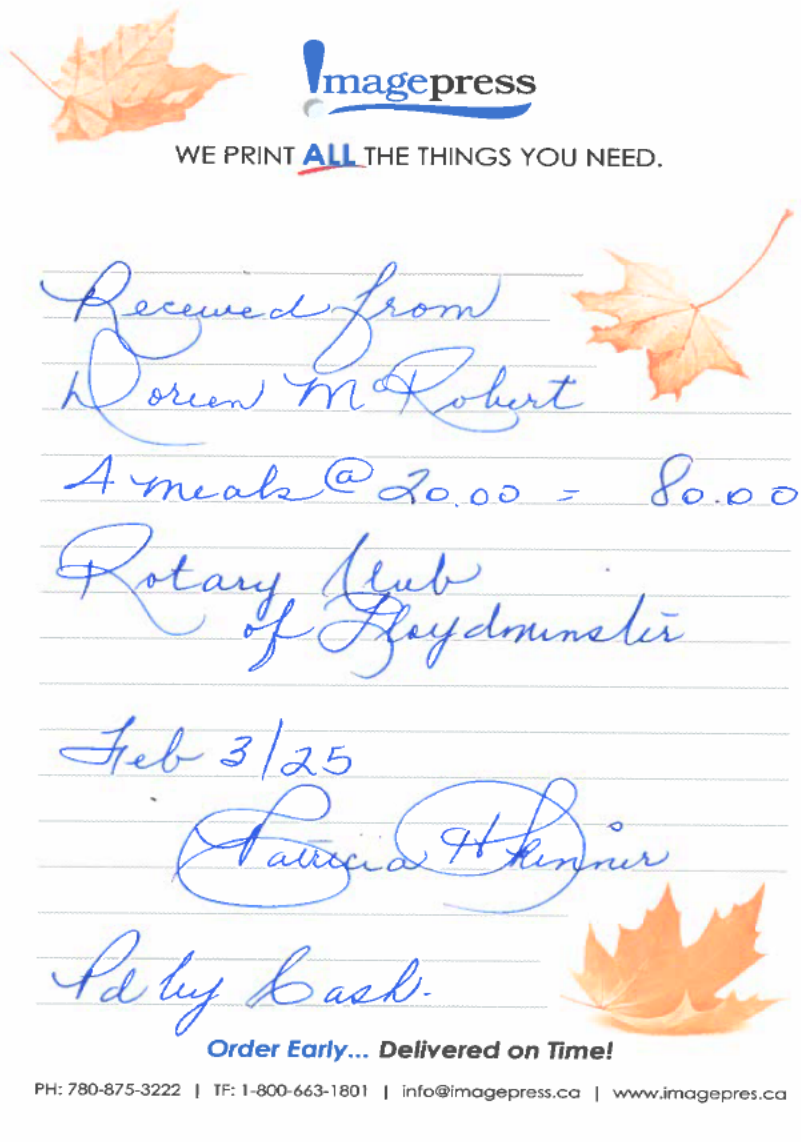 Imagepress
WE PRINT ALL THE THINGS YOU NEED.
Received from
Doreen McRobert
4 meals @ 20.00 = 80.00
Rotary Club
of Lloydminster
Feb 3/25
Patricia H Skinner
Pd by Cash.
Order Early... Delivered on Time!
PH: 780-875-3222 | TF: 1-800-663-1801 | info@imagepress.ca | www.imagepres.ca